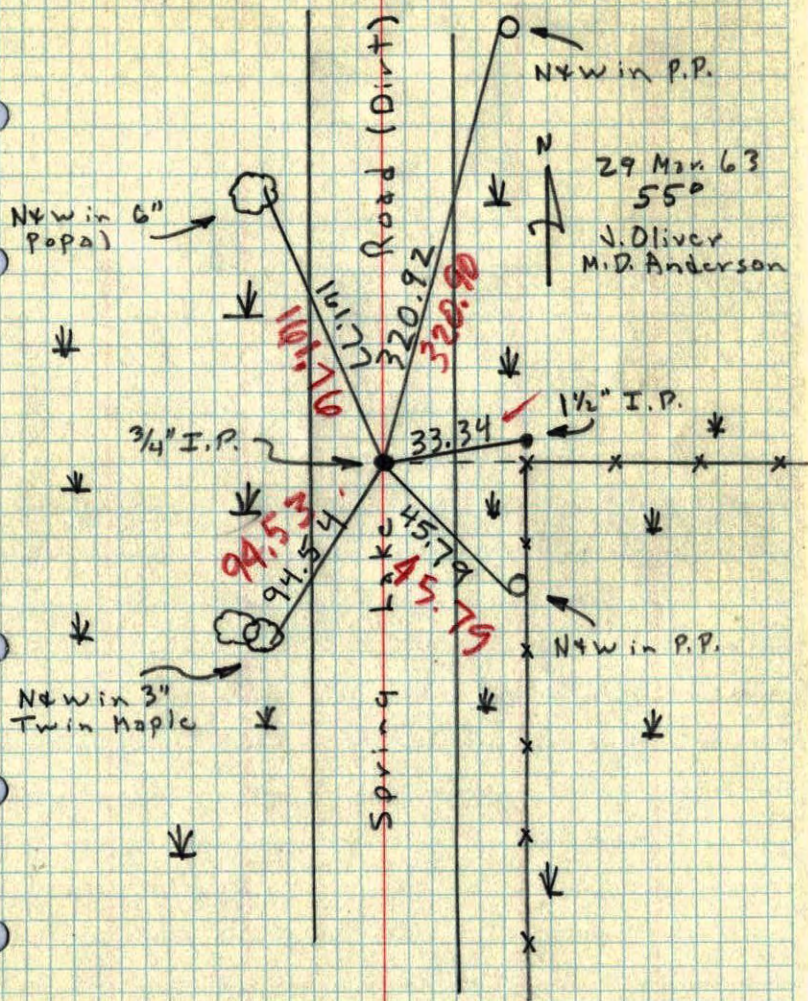 Spring Lake Road (Dirt)
N&W in P.P.
N
29 Mar. 63
55°
J. Oliver
M.D. Anderson
N&W in 6"
Popal
161.77
161.76
320.92
320.90
1½" I.P.
33.34
¾" I.P.
94.53
94.54
45.79
45.75
N&W in P.P.
N&W in 3"
Twin Maple